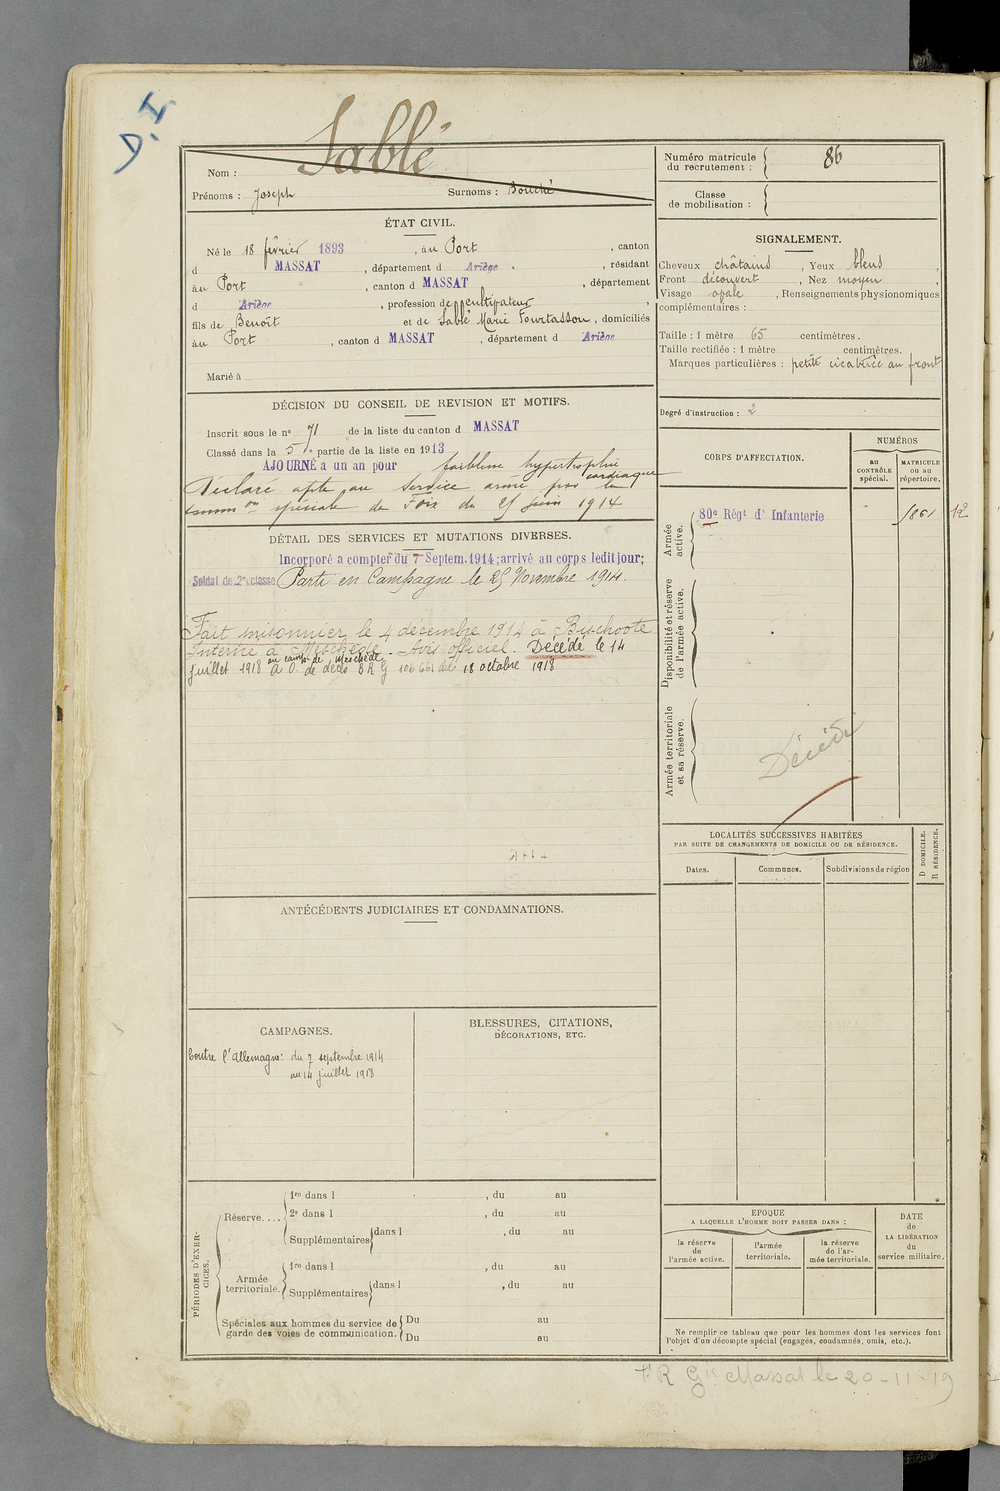 D. I
Sablé
Nom :
Prénoms : Joseph Surnoms : Bouché
Numéro matricule du recrutement : 86
Classe de mobilisation :
ÉTAT CIVIL.
Né le 18 février 1893, au Port, canton
d MASSAT, département d Ariège, résidant
au Port, canton d MASSAT, département
d Ariège, profession de cultivateur
fils de Benoît et de Sablé Marie Fourtasson, domiciliés
au Port, canton d MASSAT, département d Ariège
Marié à
SIGNALEMENT.
Cheveux châtains, Yeux bleus,
Front découvert, Nez moyen,
Visage opale, Renseignements physionomiques
complémentaires :
Taille : 1 mètre 65 centimètres.
Taille rectifiée : 1 mètre centimètres.
Marques particulières : petite cicatrice au front
Degré d'instruction : 2
DÉCISION DU CONSEIL DE REVISION ET MOTIFS.
Inscrit sous le nº 71 de la liste du canton d MASSAT
Classé dans la 5e partie de la liste en 1913
AJOURNÉ à un an pour faiblesse hypertrophie cardiaque
Déclaré apte au service armé par la
comm on spéciale de Foix du 25 juin 1914
DÉTAIL DES SERVICES ET MUTATIONS DIVERSES.
Incorporé a compter du 7 Septem. 1914; arrivé au corps ledit jour;
Soldat de 2e classe Parti en Campagne le 25 Novembre 1914.
Fait prisonnier le 4 décembre 1914 à Bischoote
Interné à Meschede. Avis officiel. Décédé le 14
au camp de Meschede
juillet 1918 A. O. de décès B R G 106 661 du 18 octobre 1918
CORPS D'AFFECTATION.
NUMÉROS
au CONTRÔLE spécial.
MATRICULE ou au répertoire.
Armée active.
80e Régt d'Infanterie
1861 12
Disponibilité et réserve de l'armée active.
Armée territoriale et sa réserve.
Décédé
LOCALITÉS SUCCESSIVES HABITÉES
PAR SUITE DE CHANGEMENTS DE DOMICILE OU DE RÉSIDENCE.
D DOMICILE.
R RÉSIDENCE.
Dates. Communes. Subdivisions de région
ANTÉCÉDENTS JUDICIAIRES ET CONDAMNATIONS.
CAMPAGNES.
Contre l'Allemagne: du 7 septembre 1914
au 14 juillet 1918
BLESSURES, CITATIONS,
DÉCORATIONS, ETC.
PÉRIODES D'EXERCICES.
Réserve....
1re dans l , du au
2e dans l , du au
Supplémentaires dans l , du au
Armée territoriale.
1re dans l , du au
Supplémentaires dans l , du au
Spéciales aux hommes du service de garde des voies de communication.
Du au
Du au
EPOQUE
A LAQUELLE L'HOMME DOIT PASSER DANS :
la réserve de l'armée active.
l'armée territoriale.
la réserve de l'armée territoriale.
DATE de LA LIBÉRATION du service militaire.
Ne remplir ce tableau que pour les hommes dont les services font
l'objet d'un décompte spécial (engagés, condamnés, omis, etc.).
F R Gie Massat le 20-11-19